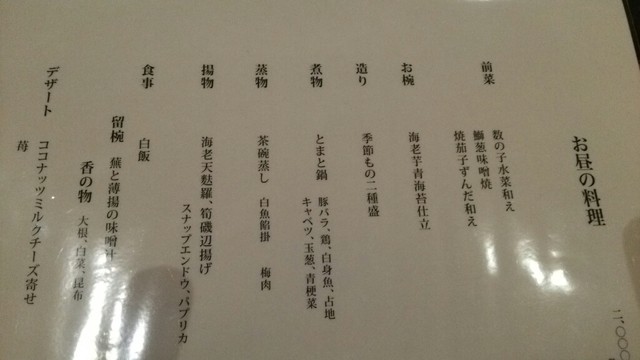 お昼の料理
二、〇〇〇
前菜
数の子水菜和え
鰤葱味噌焼
焼茄子ずんだ和え
お椀
海老芋青海苔仕立
造り
季節もの二種盛
煮物
とまと鍋 豚バラ、鶏、白身魚、占地
キャベツ、玉葱、青梗菜
蒸物
茶碗蒸し 白魚餡掛 梅肉
揚物
海老天麩羅、筍磯辺揚げ
スナップエンドウ、パプリカ
食事
白飯
留椀 蕪と薄揚の味噌汁
香の物 大根、白菜、昆布
デザート
ココナッツミルクチーズ寄せ
苺